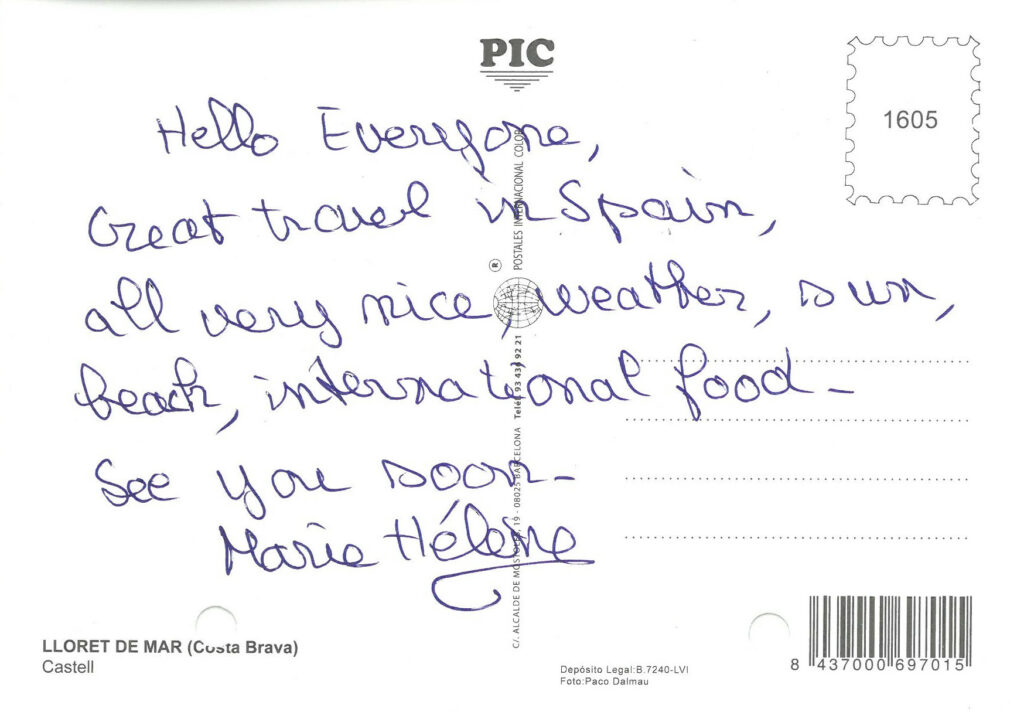 PIC
1605
Hello Everyone,
Great travel in Spain,
all very nice, weather, sun,
beach, international food –
See you soon –
Marie Hélène
® POSTALES INTERNACIONAL COLOR
C/. ALCALDE DE MOSTOLES, 19 - 08025 BARCELONA Teléf. 93 434 92 21
LLORET DE MAR (Costa Brava)
Castell
Depósito Legal:B.7240-LVI
Foto:Paco Dalmau
8 437000 697015